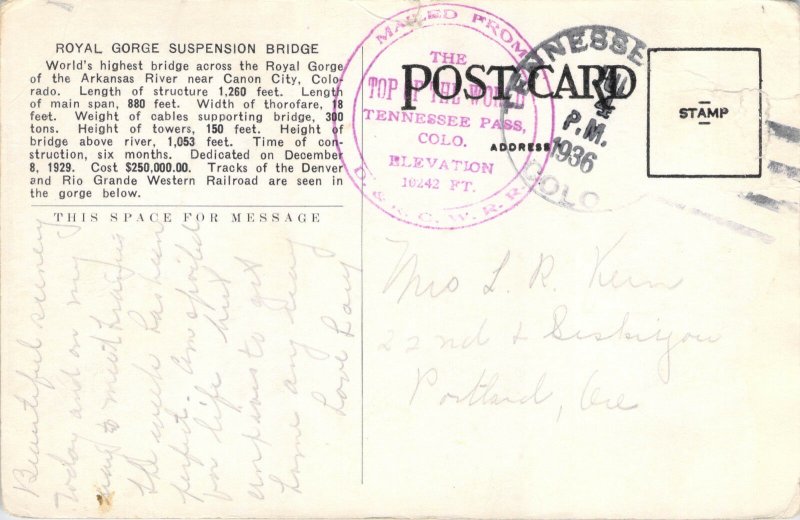 ROYAL GORGE SUSPENSION BRIDGE
World's highest bridge across the Royal Gorge
of the Arkansas River near Canon City, Colo-
rado. Length of structure 1,260 feet. Length
of main span, 880 feet. Width of thorofare, 18
feet. Weight of cables supporting bridge, 300
tons. Height of towers, 150 feet. Height of
bridge above river, 1,053 feet. Time of con-
struction, six months. Dedicated on December
8, 1929. Cost $250,000.00. Tracks of the Denver
and Rio Grande Western Railroad are seen in
the gorge below.
THIS SPACE FOR MESSAGE
Beautiful scenery
today and on my
way to meet
the week has been
perfect. Am spoiled
for life but
anxious to get
home any way
Love
MAILED FROM
THE
TOP OF THE WORLD
TENNESSEE PASS,
COLO.
ELEVATION
10242 FT.
D. & R. G. W. R. R.
POST CARD
ADDRESS
TENNESSEE
P.M.
1936
COLO
STAMP
Mrs L. R. Kern
22nd & Siskiyou
Portland, Ore